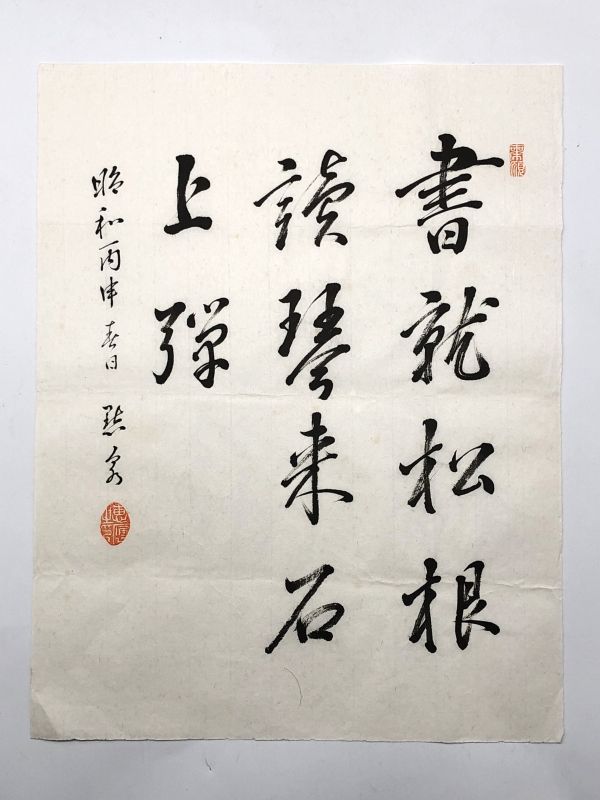 書就松根
讀琴来石
上彈
昭和丙申春日